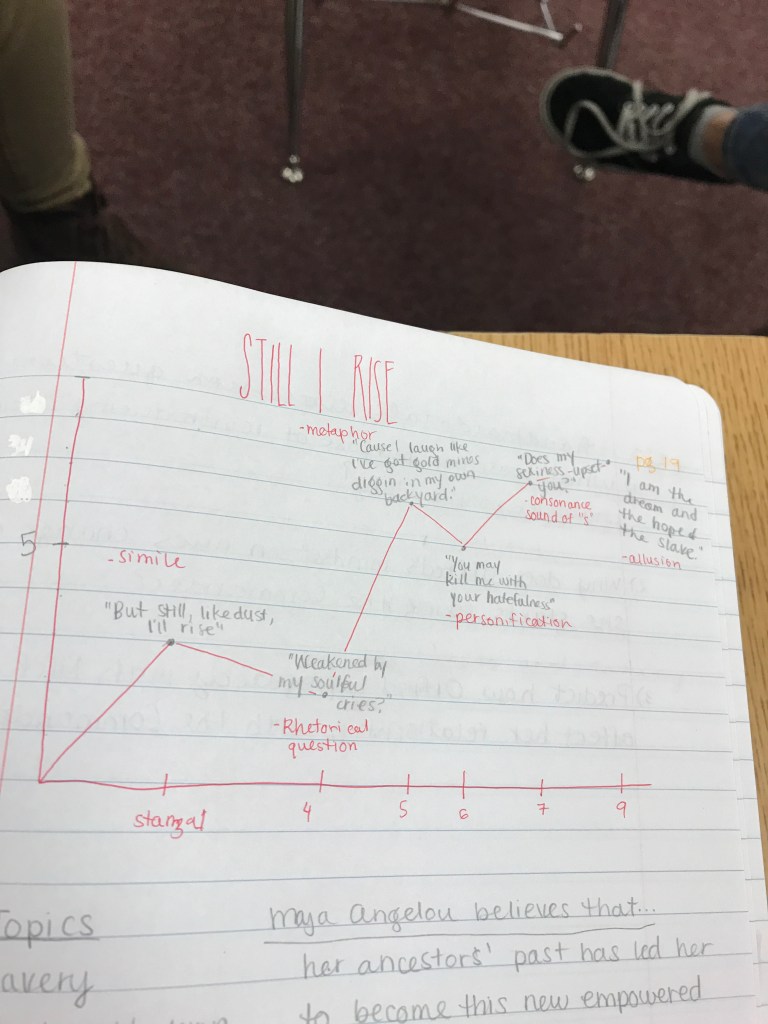 STILL I RISE
-metaphor
"Cause I laugh like
I've got gold mines
diggin in my own
backyard."
"Does my
-upset
you?"
-consonance
sound of "s"
pg 19
"I am the
dream and
the hope of
the slave."
-allusion
5
-simile
"But still, like dust,
I'll rise"
"You may
kill me with
your hatefulness"
-personification
"Weakened by
my soulful
cries?"
-Rhetorical
question
stanza 1
4
5
6
7
9
Topics
avery
maya angelou believes that...
her ancestors' past has led her
to become this new empowered